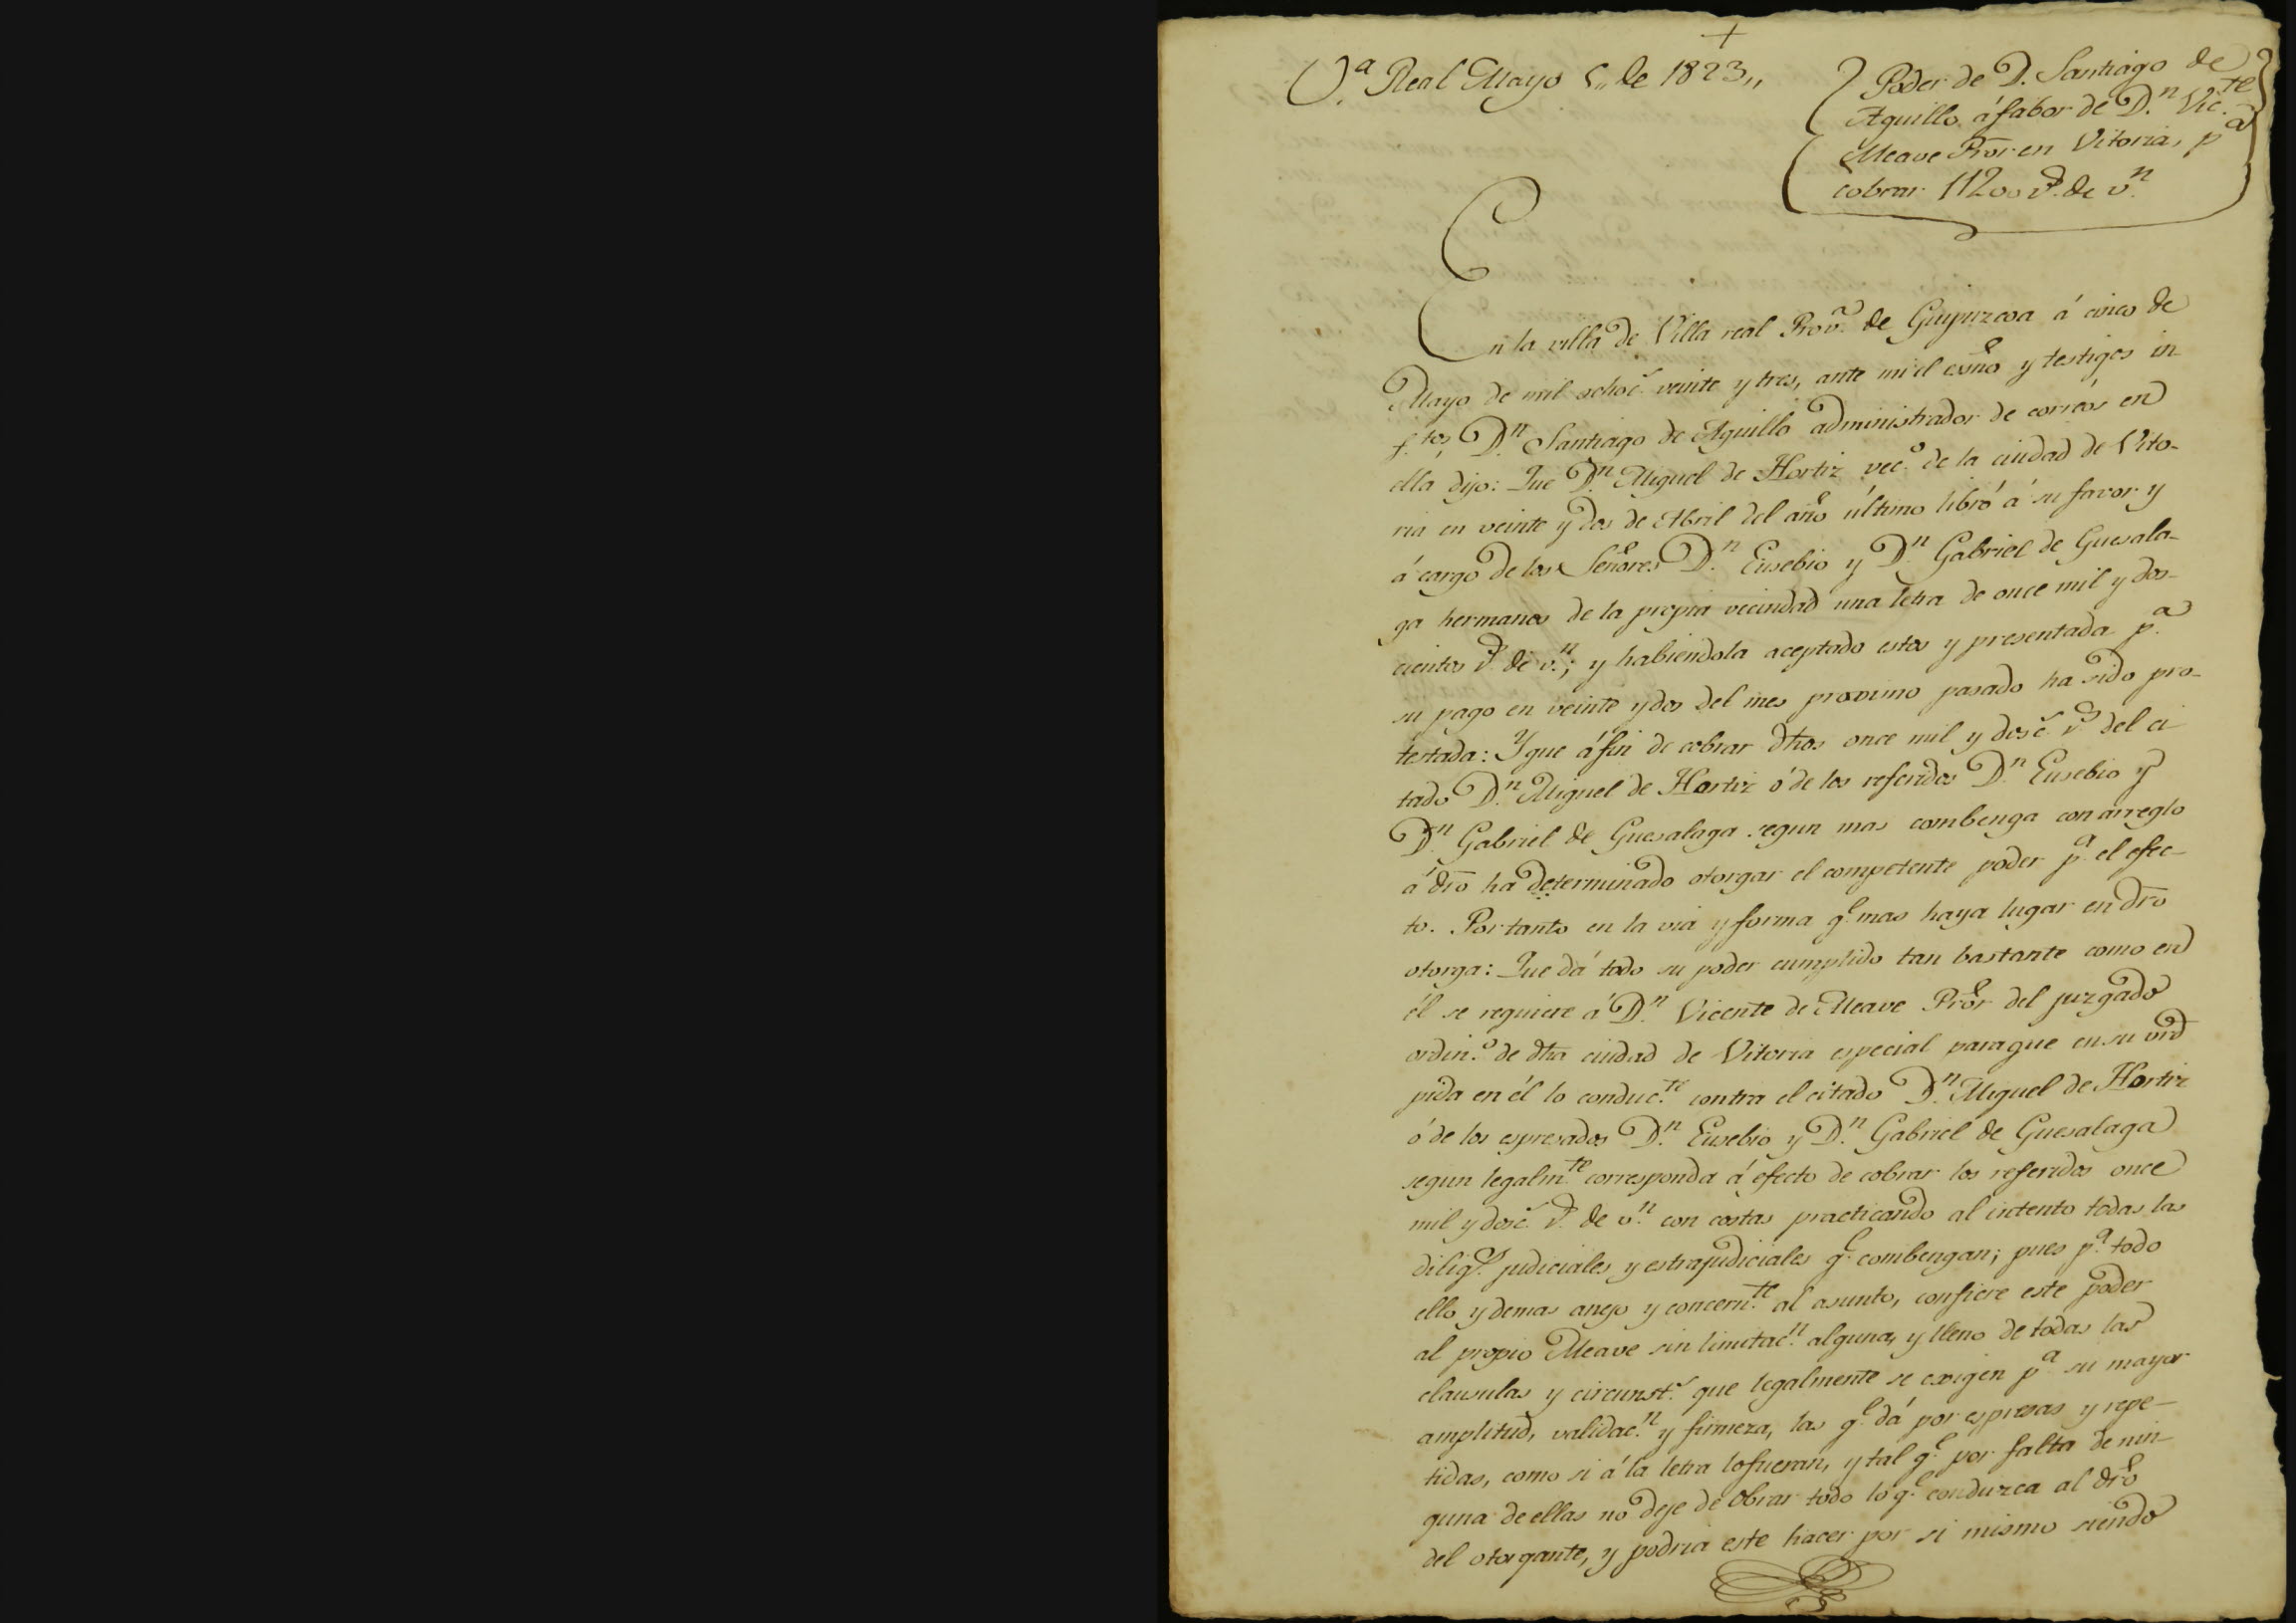 +
V.ª Real Mayo 5,, de 1823,,
Poder de D. Santiago de
Aguillo á fabor de D.n Vic.te
Meave Pror en Vitoria, p.ª
cobrar 11200 r.s de v.n
En la villa de Villa real Prov.ª de Guipuzcoa á cinco de
Mayo de mil ochoc.s veinte y tres, ante mi el esño y testigos in-
f.tos, D.n Santiago de Aguillo administrador de correos en
ella dijo: Que D.n Miguel de Hortiz vec.º de la ciudad de Vito-
ria en veinte y dos de Abril del año último libró á su favor y
á cargo de los Señores D.n Eusebio y D.n Gabriel de Guesala-
ga hermanos de la propia vecindad una letra de once mil y dos-
cientos r.s de v.n; y habiendola aceptado estos y presentada p.ª
su pago en veinte y dos del mes proximo pasado ha sido pro-
testada: Y que á fin de cobrar dhos once mil y dosc.s r.s del ci-
tado D.n Miguel de Hortiz ó de los referidos D.n Eusebio y
D.n Gabriel de Guesalaga segun mas combenga con arreglo
á dro ha determinado otorgar el competente poder p.ª el efec-
to. Por tanto en la via y forma q.e mas haya lugar en dro
otorga: Que dá todo su poder cumplido tan bastante como en
él se requiere á D.n Vicente de Meave Pror del juzgado
ordin.º de dha ciudad de Vitoria especial para que en su vird
pida en él lo conduc.te contra el citado D.n Miguel de Hortiz
ó de los espresados D.n Eusebio y D.n Gabriel de Guesalaga
segun legalm.te corresponda á efecto de cobrar los referidos once
mil y dosc.s r.s de v.n con costas practicando al intento todas las
dilig.s judiciales y estrajudiciales q.e combengan; pues p.ª todo
ello y demas anejo y concern.te al asunto, confiere este poder
al propio Meave sin limitac.n alguna, y lleno de todas las
clausulas y circunst.s que legalmente se exigen p.ª su mayor
amplitud, validac.n y firmeza, las q.e dá por espresas y repe-
tidas, como si á la letra lo fueran, y tal q.e por falta de nin-
guna de ellas no deje de obrar todo lo q.e conduzca al dro
del otorgante, y podria este hacer por si mismo siendo